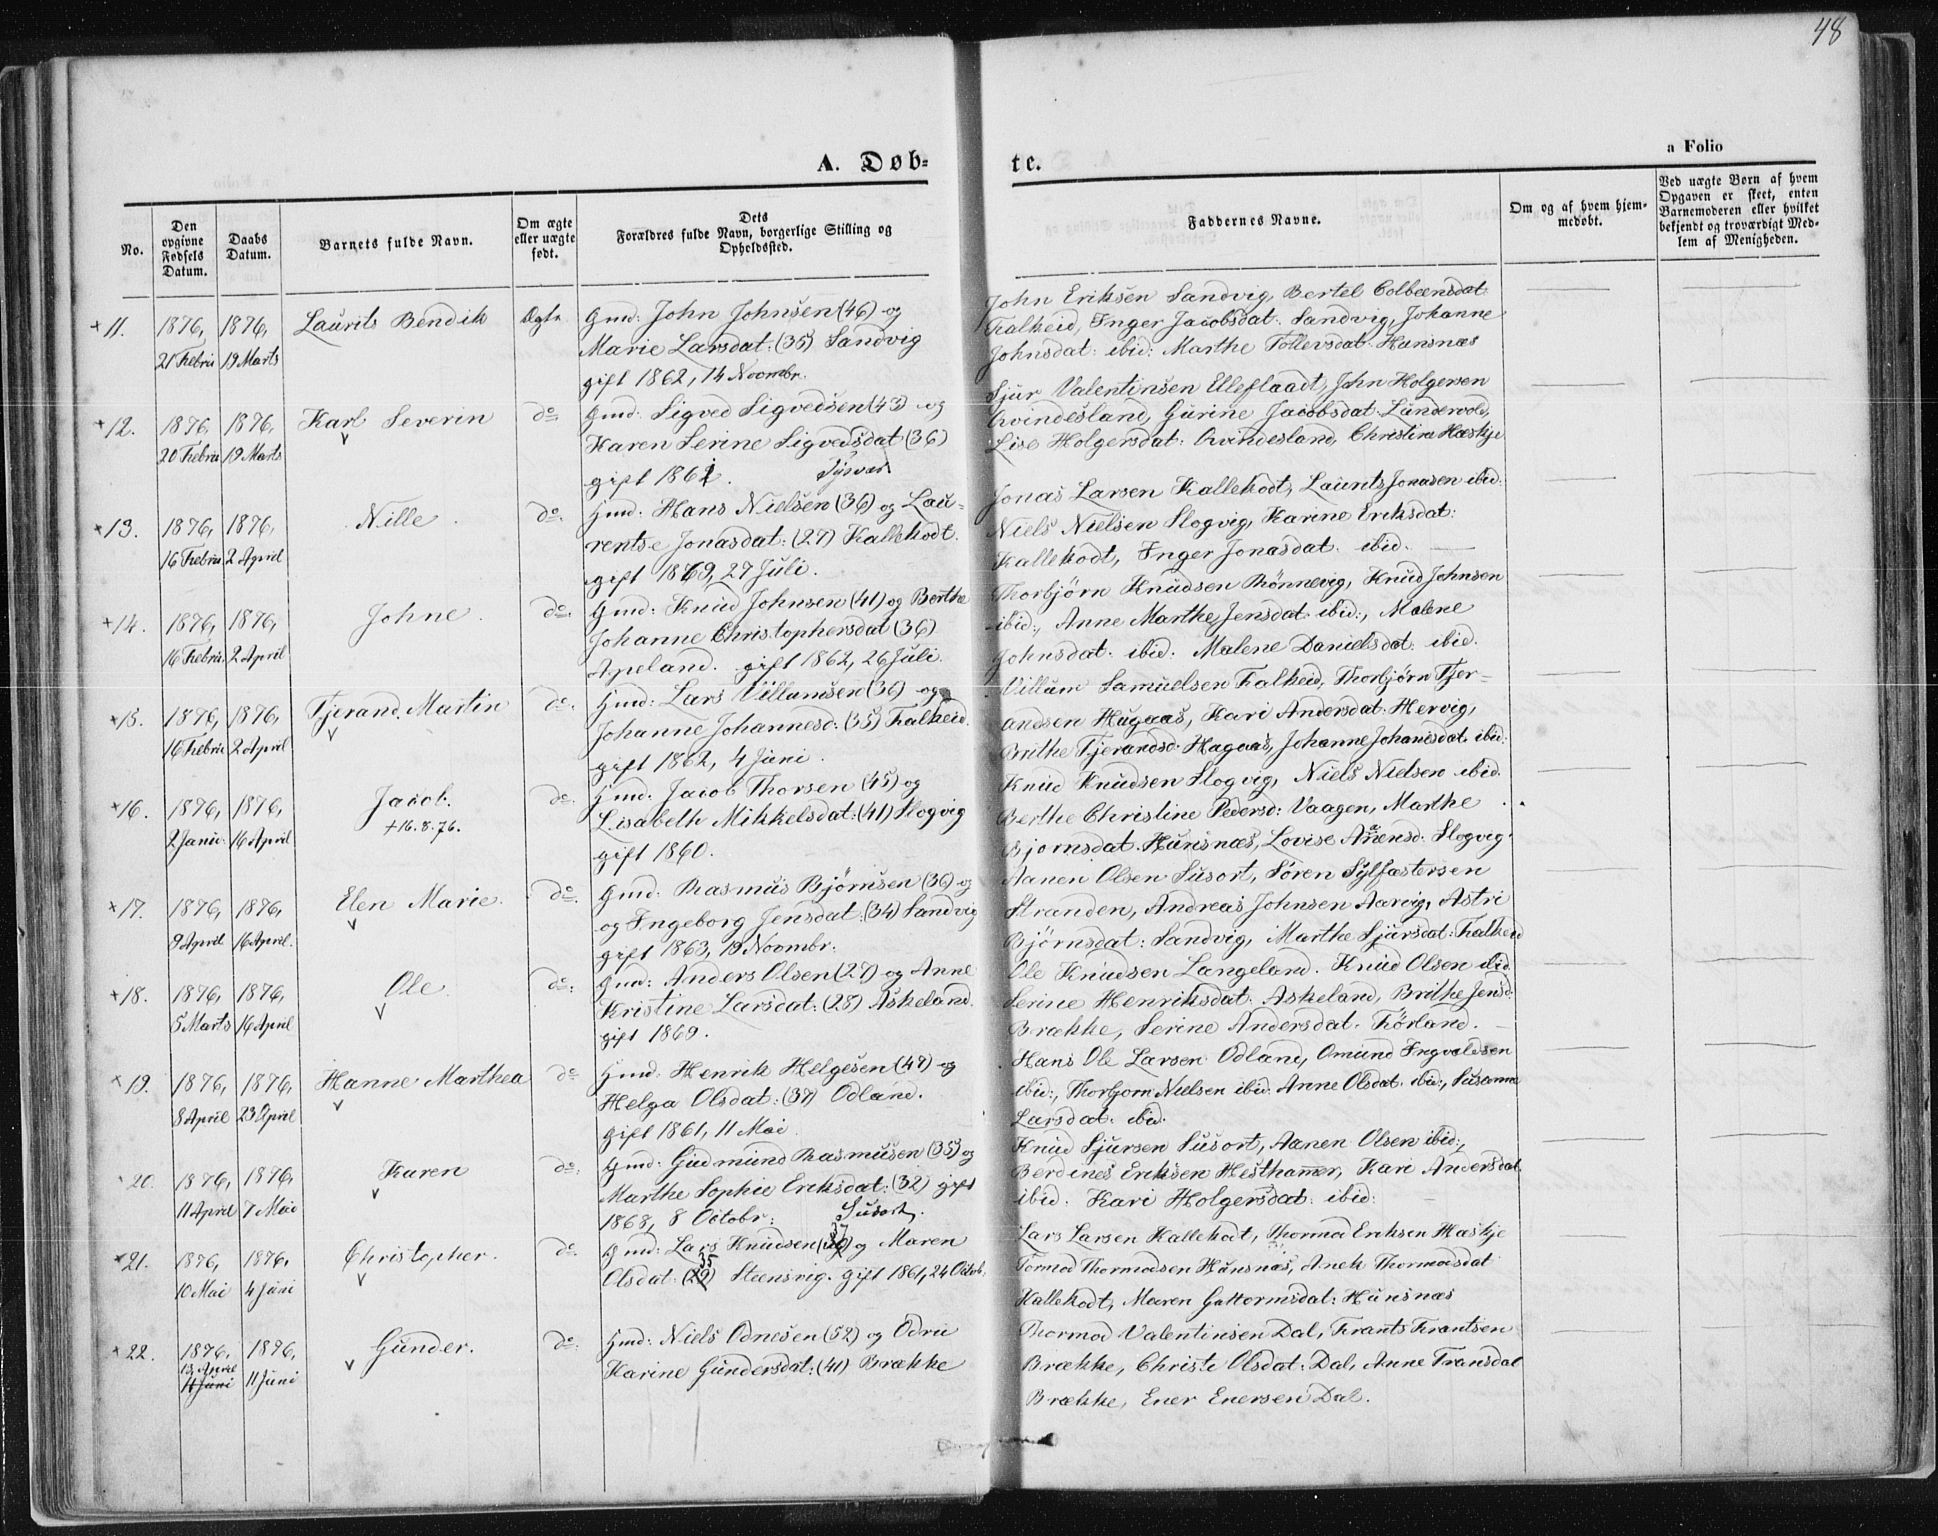 48
A. Døb-
te.
a Folio
No.
Den opgivne Fødsels Datum.
Daabs Datum.
Barnets fulde Navn.
Om ægte eller uægte født.
Dets Forældres fulde Navn, borgerlige Stilling og Opholdssted.
Faddernes Navne.
Om og af hvem hjemmedøbt.
Ved uægte Børn af hvem Opgaven er skeet, enten Barnemoderen eller hvilket bekjendt og troværdigt Medlem af Menigheden.
×11. 1876, 21 Febru 1876, 19 Marts Laurits Bendik Ægte
Gmd: John Johnsen (46) og
Marie Larsdat: (35) Sandvig
gift 1862, 14 Noombr.
John Eriksen Sandvig, Bertel Colbeensdat
Falkeid, Inger Jacobsdat. Sandvig, Johanne
Johnsdat: ibid: Marthe Tollevsdat Hunsnæs
×12. 1876, 20 Febru 1876, 19 Marts Karl Severin do
Gmd: Sigved Sigvedsen (43) og
Karen Serine Sigvedsdat (36)
gift 1861. Tysvær
Sjur Valentinsen Elleflaadt, John Holgersen
Qvindesland, Gurine Jacobsdat Lundevold,
Lise Holgersdat: Qvindesland, Christine Hæskje
×13. 1876, 16 Febru 1876, 2 April Nille do.
Hmd: Hans Nielsen (36) og Lau-
rentse Jonasdat: (27) Kallekodt.
gift 1869, 27 Juli.
Jonas Larsen Kallekodt, Laurits Jonasen ibid.
Niels Nielsen Slogvig, Karine Eriksdat:
Kallekodt, Inger Jonasdat. ibid.
×14. 1876, 16 Febru 1876, 2 April Johne do.
Gmd: Knud Johnsen (41) og Berthe
Johanne Christophersdat (36)
Apeland. gift 1862, 26 Juli.
Thorbjørn Knudsen Rønnevig, Knud Johnsen
ibid:, Anne Marthe Jensdat ibid:, Malene
Johnsdat. ibid: Malene Danielsdat. ibid.
×15. 1876, 16 Febru 1876, 2 April Tjerand Martin do.
Hmd: Lars Villumsen (36) og
Johanne Johannesd: (35) Falkeid.
gift 1862, 4 Juni.
Villum Samuelsen Falkeid, Thorbjørn Tjer-
andsen Hugaas, Kari Andersdat. Hervig,
Brithe Tjerandsd. Hagaas, Johanne Johanisdat. ibid:
×16. 1876, 2 Janu: 1876, 16 April Jacob. do.
+16.8.76.
Hmd: Jacob Thorsen (45) og
Lisabeth Mikkelsdat: (41) Slogvig
gift 1860.
Knud Knudsen Slogvig, Niels Nielsen ibid.
Berthe Christine Pedersd: Vaagen, Marthe
Bjørnsdat. Hunsnæs, Lovise Aanensd. Slogvig.
×17. 1876, 9 April 1876, 16 April. Elen Marie. do.
Gmd: Rasmus Bjørnsen (36) og
og Ingeborg Jensdat: (34) Sandvig
gift 1863, 19 Noombr:
Aanen Olsen Susort, Søren Sylfæstersen
Stranden, Andreas Johnsen Aarvig, Astri
Bjørnsdat: Sandvig, Marthe Sjursdat: Falkeid
×18. 1876, 5 Marts 1876, 16 April Ole do:
Gmd: Anders Olsen (27) og Anne
Kristine Larsdat: (28) Askeland.
gift 1869.
Ole Knudsen Langeland. Knud Olsen ibid.
Serine Henriksdat: Askeland, Brithe Jensd:
Brække, Serine Andersdat. Førland.
×19. 1876, 8 April 1876, 23 April Hanne Marthea do
Hmd: Henrik Helgesen (47) og
Helga Olsdat: (37) Odland.
gift 1861, 11 Mai.
Hans Ole Larsen Odland, Omund Ingvaldsen
ibid:, Thorbjorn Nielsen ibid. Anne Olsdat. ibid:, Susanne
Larsdat. ibid.
20. 1876, 11 April 1876, 7 Mai Karen do.
Gmd: Gudmund Rasmusen (35) og
Marthe Sophie Eriksdat: (32) gift
1868, 8 Octobr: Susort.
Knud Sjursen Susort, Aanen Olsen ibid:,
Berdines Eriksen Hesthamer, Kari Andersdat.
ibid. Kari Holgersdat: ibid:
×21. 1876, 10 Mai 1876, 4 Juni Christopher. do
Gmd: Lars Knudsen (37) og Maren
Olsdat: (29) 35 Steensvig. gift 1861, 24 Octob.
Lars Larsen Kallekodt, Thormod Eriksen Hæskje
Tormod Thormodsen Hunsnæs, Anek Thormodsdat
Kallekodt, Maren Guttormsdat: Hunsnæs
×22. 1876, 13 April 11 Juni 1876, 11 Juni Gunder. do:
Hmd: Niels Odnesen (52) og Odru
Karine Gundersdat: (41) Brække
Thormod Valentinsen Dal, Frants Frantsen
Brække, Christi Olsdat: Dal, Anne Fransdat
Brække, Ener Enersen Dal.